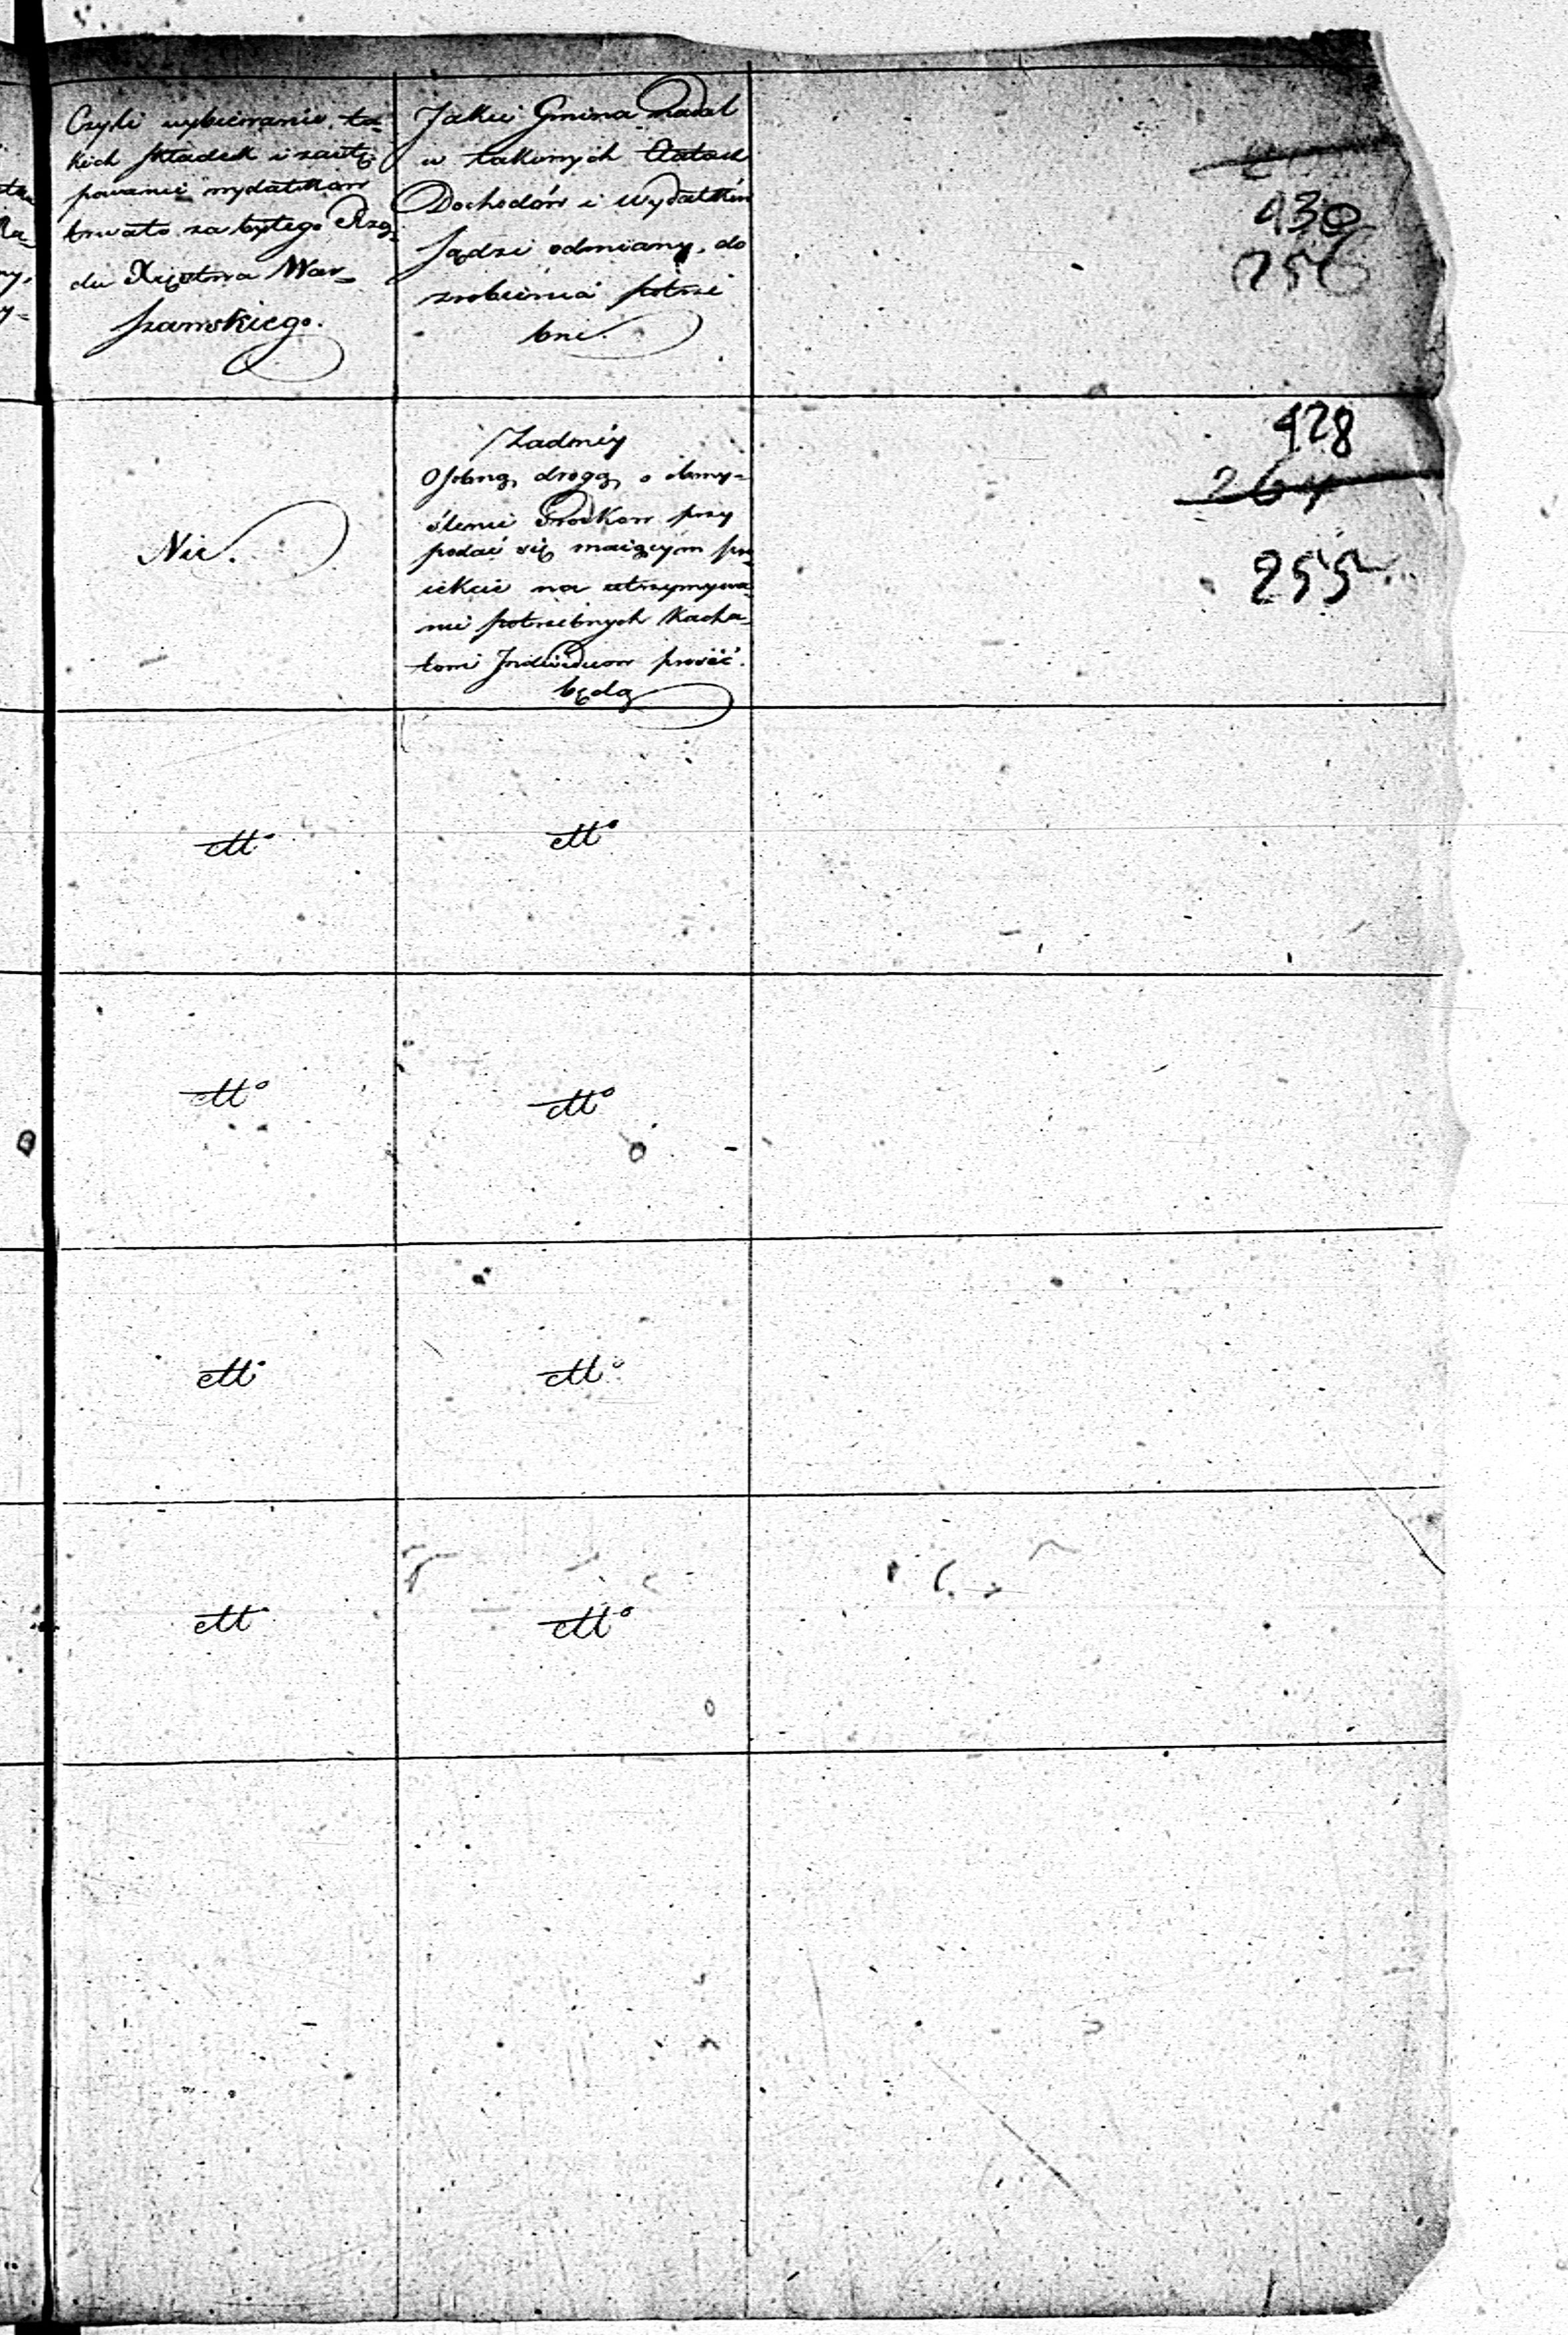 Czyli wybieranie ta-
kich składek i zastę-
powanie wydatkow
trwało za byłego Rzą-
du Xięstwa War-
szawskiego.
Jakie Gmina nadal
w takowych Etatach
Dochodów i wydatków
sądzi odmiany do
zrobienia potrze
bne.
430
256
428
264
255
Nie.
Żadney
Osobną drogą o obmy-
ślenie środkow przy
podać się maiącym pro-
iekcie na utrzymywa-
nie potrzebnych Kacha-
łowi Indiwiduow prosić
będą
dtto
dtto
dtto
dtto
dtto
dtto
dtto
dtto